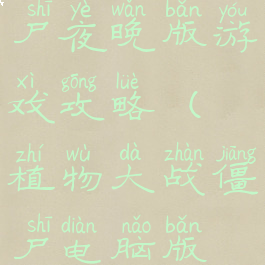 shī yè wǎn bǎn yóu
尸夜晚版游
xì gōng lüè
戏攻略(
zhí wù dà zhàn jiāng
植物大战僵
shī diàn nǎo bǎn
尸电脑版